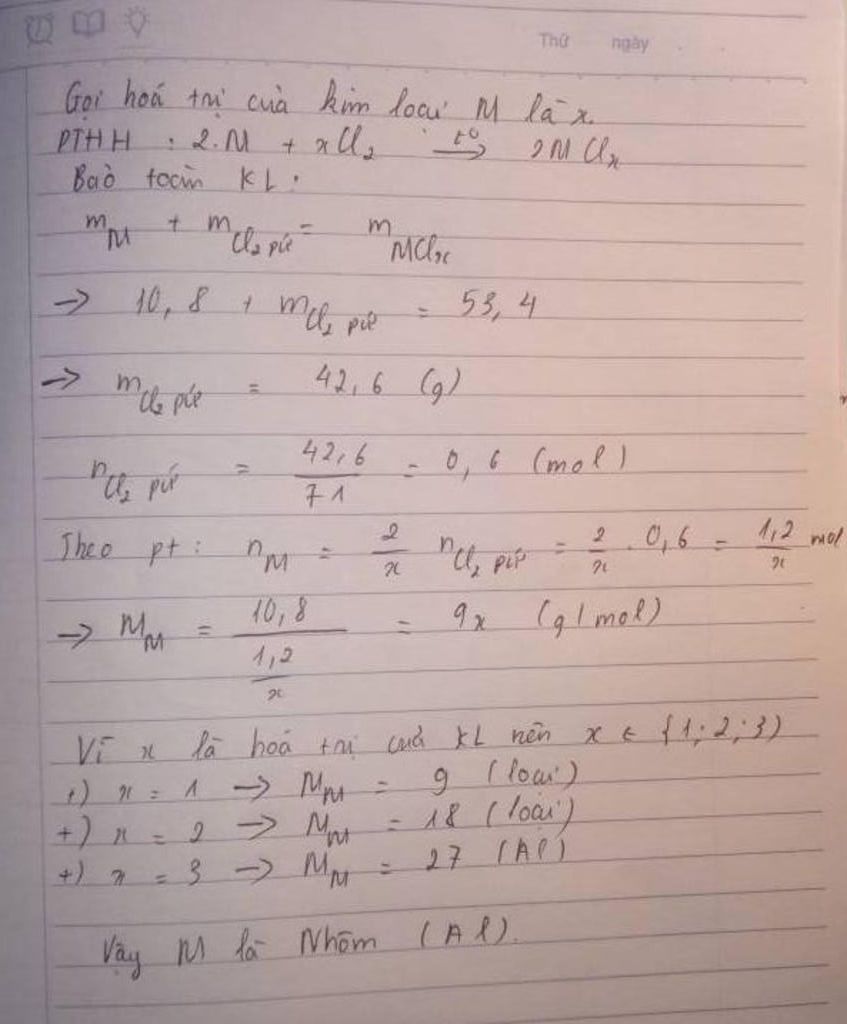 Thứ ngày
Gọi hoá trị của kim loại M là x.
PTHH : 2.M + xCl₂ →(t⁰) 2MClₓ
Bảo toàn KL :
m_M + m_Cl₂ pứ = m_MClₓ
→ 10,8 + m_Cl₂ pứ = 53,4
→ m_Cl₂ pứ = 42,6 (g)
n_Cl₂ pứ = 42,6/71 = 0,6 (mol)
Theo pt : n_M = 2/x n_Cl₂ pứ = 2/x . 0,6 = 1,2/x mol
→ M_M = 10,8/(1,2/x) = 9x (g/mol)
Vì x là hoá trị của KL nên x ∈ {1;2;3}
+) x = 1 → M_M = 9 (loại)
+) x = 2 → M_M = 18 (loại)
+) x = 3 → M_M = 27 (Al)
Vậy M là Nhôm (Al).